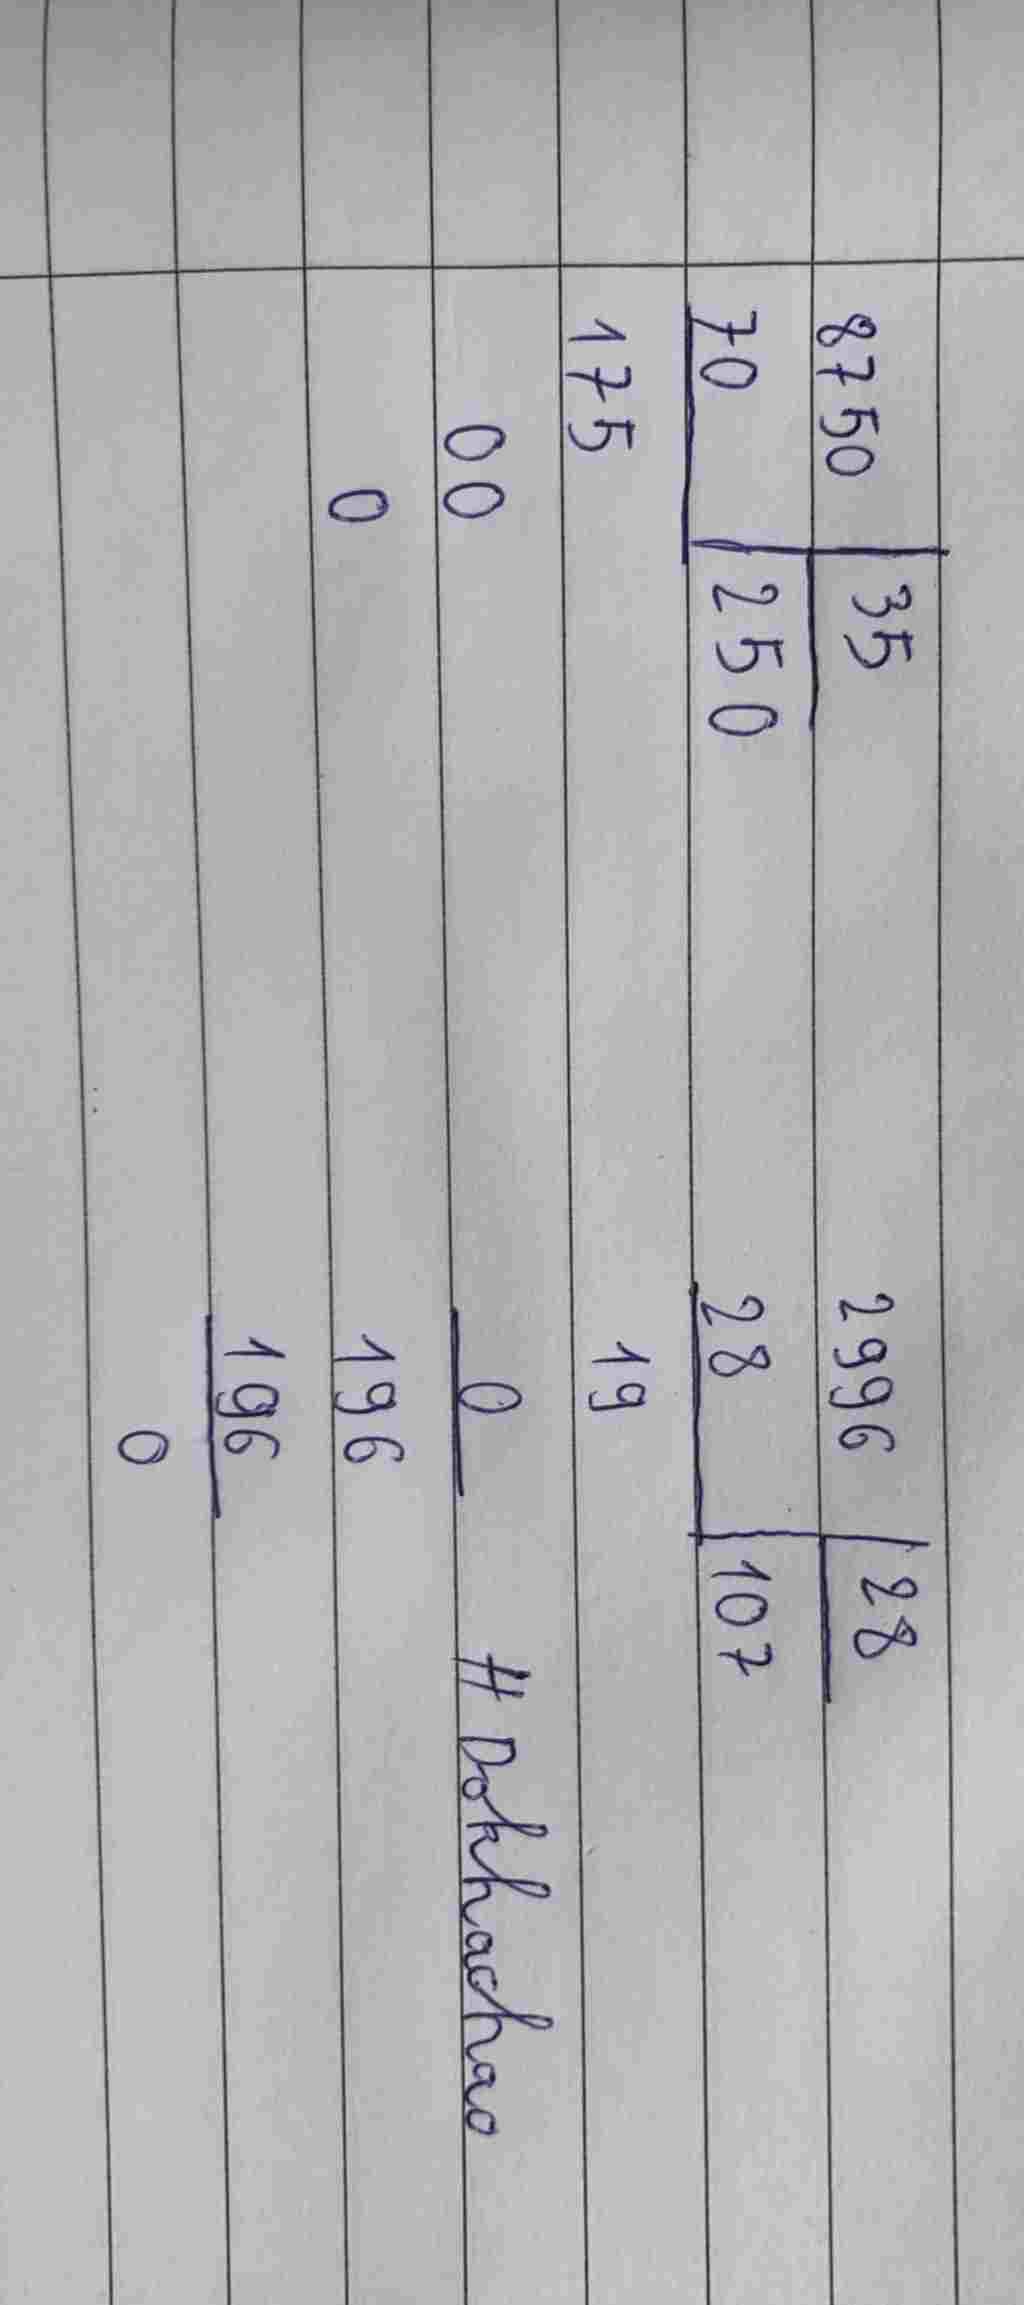 8750 35
70 250
175
00
0
2996 28
28 107
19
0
196
196
0
# Dokhachao